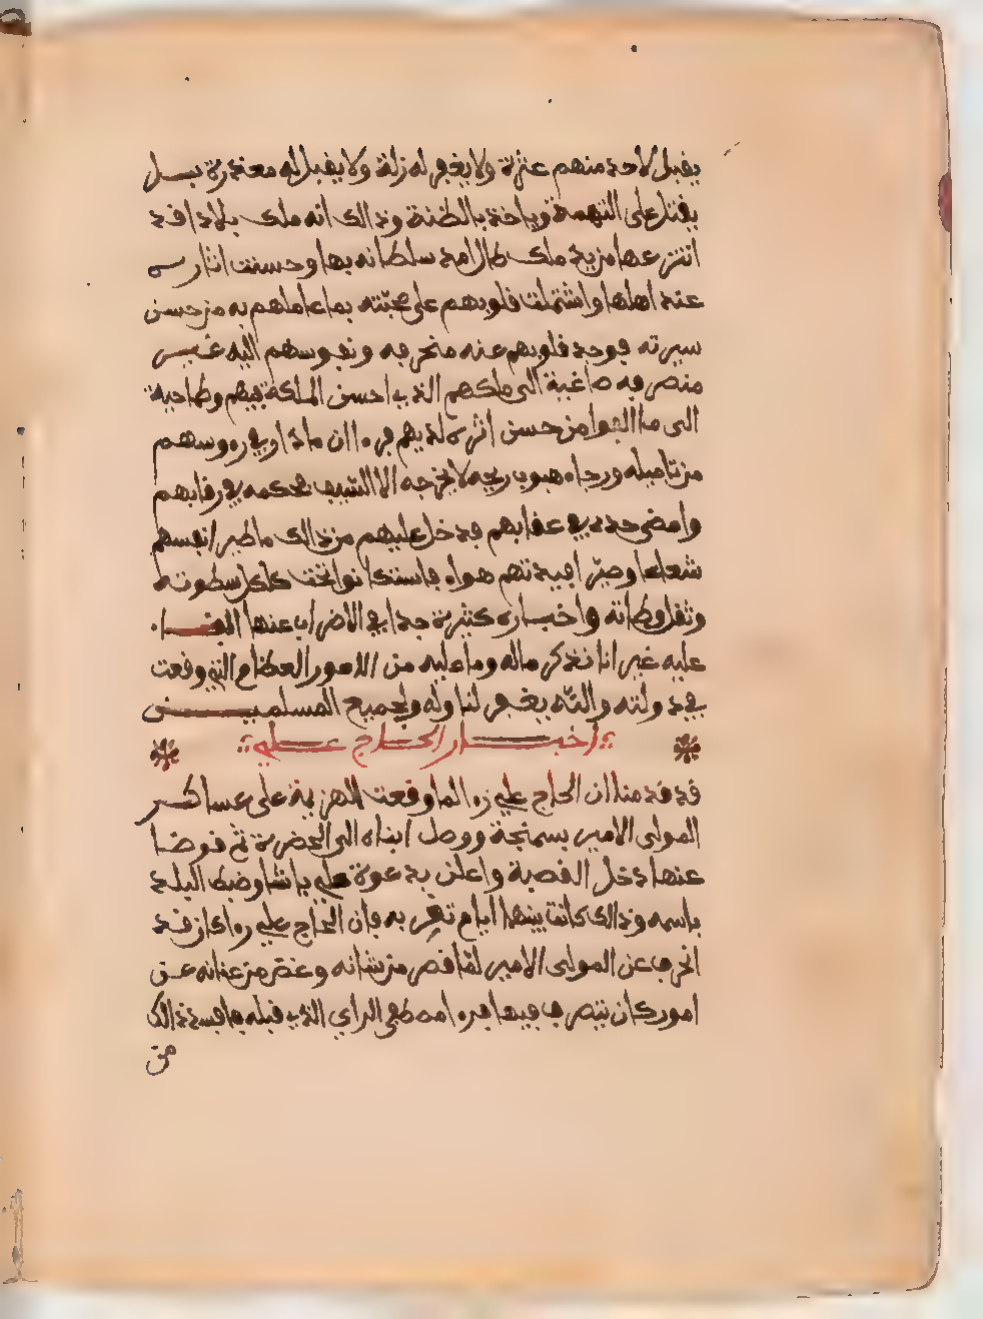 يقبل لاحد منهم عثرة ولا يغفر له زلة ولا يقبل له معذرة بـــل
يقتل على التهمة وياخذ بالظنة وذالك انه ملك بلادا قد
انتزعها من يد ملك طال امد سلطانه بها وحسنت اثاره
عند اهلها واشتملت قلوبهم على محبّته بما عاملهم به من حسن
سيرته فوجد قلوبهم عنه منحرفه ونفوسهم اليه غيـــر
منصرفه صاغية الى ملكهم الذي احسن الملكة فيهم وطامحة
الى ما الفوا من حسن اثره لديهم فرءا ان ما دار في رءوسهم
من تاميله ورجاء هبوب ريحه لا يخرجه الا السّيف فحكمه في رقابهم
وامضى حده في عقابهم فدخل عليهم من ذالك ما طير انفسهم
شعاعا وصيّر افيدتهم هواء فاستكانوا تحت كلكل سطوته
وثقل وطاته واخباره كثيرة جدا في الاضراب عنها ابقـــا.
عليه غير انا نذكر ماله وما عليه من الامور العظام التي وقعت
في دولته والله يغفر لنا وله ولجميع المسلميـــن
اخبـــار الحـــاج عـــلي
قد قدمنا ان الحاج علي زه لما وقعت الهزيمة على عساكـــر
المولى الامير بسمنجة ووصل ابناه الى الحضرة ثم قوضا
عنها دخل القصبة واعلن بدعوة علي باشا وضبط البلد
باسمه وذالك كانت بينهما ايام تغر به فان الحاج علي زه كان قد
انحرف عن المولى الامير لما قصر من شانه وغض من عنانه عـن
امور كان يتصرف فيها فرءا مصطفى الراي الذي قبله فافسد ذالك
من